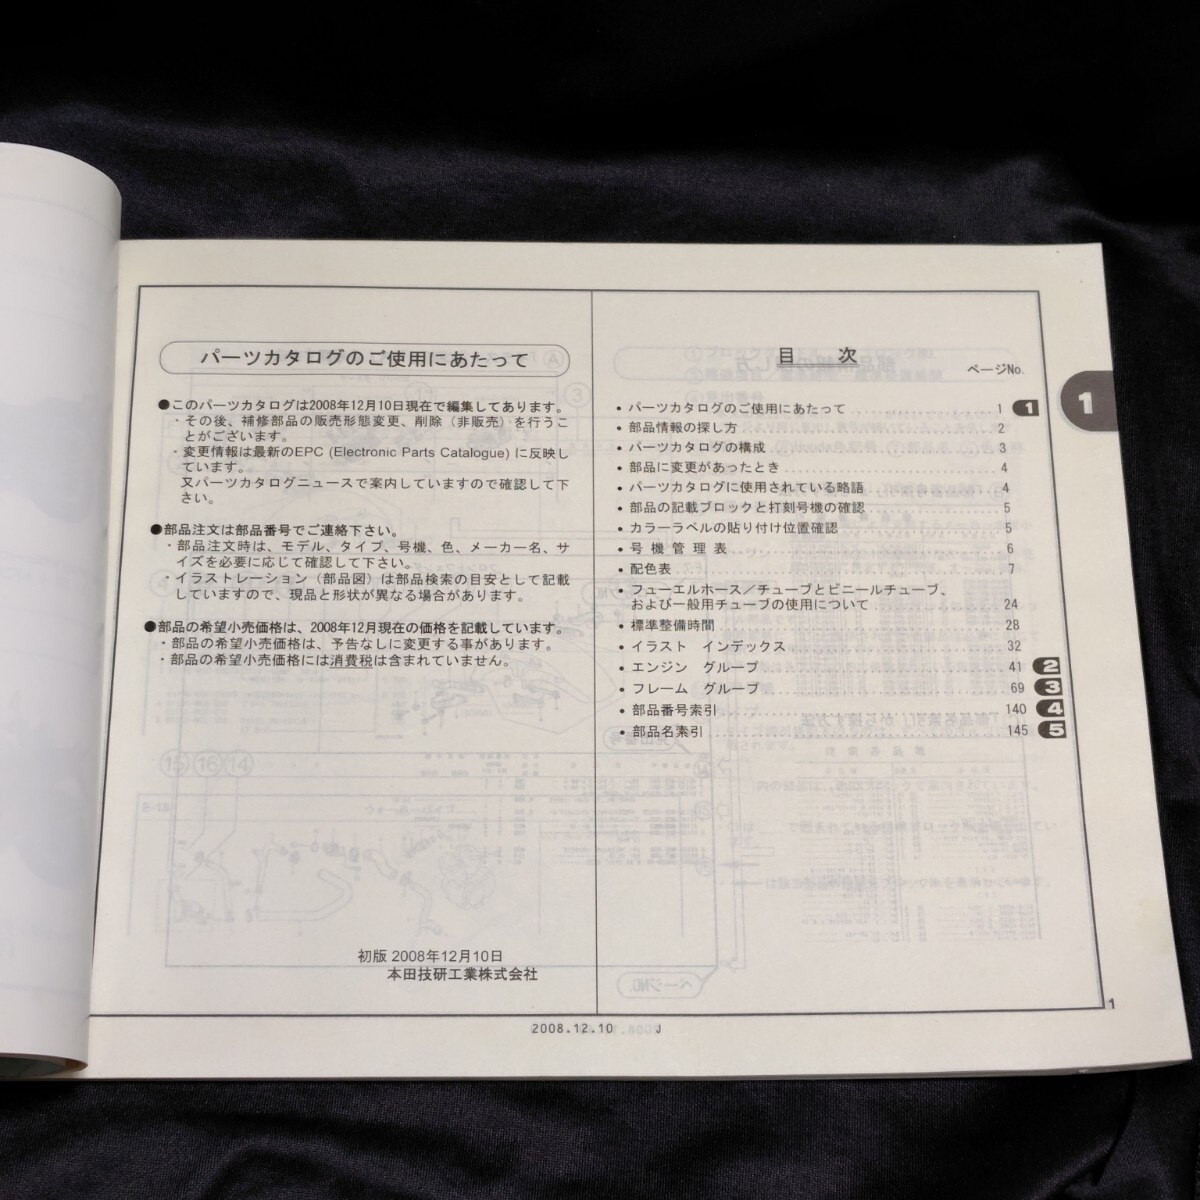 パーツカタログのご使用にあたって
●このパーツカタログは2008年12月10日現在で編集してあります。
・その後、補修部品の販売形態変更、削除（非販売）を行うこ
とがございます。
・変更情報は最新のEPC (Electronic Parts Catalogue) に反映し
ています。
又パーツカタログニュースで案内していますので確認して下
さい。
●部品注文は部品番号でご連絡下さい。
・部品注文時は、モデル、タイプ、号機、色、メーカー名、サ
イズを必要に応じて確認して下さい。
・イラストレーション（部品図）は部品検索の目安として記載
していますので、現品と形状が異なる場合があります。
●部品の希望小売価格は、2008年12月現在の価格を記載しています。
・部品の希望小売価格は、予告なしに変更する事があります。
・部品の希望小売価格には消費税は含まれていません。
初版 2008年12月10日
本田技研工業株式会社
目 次
ページNo.
・パーツカタログのご使用にあたって 1 1
・部品情報の探し方 2
・パーツカタログの構成 3
・部品に変更があったとき 4
・パーツカタログに使用されている略語 4
・部品の記載ブロックと打刻号機の確認 5
・カラーラベルの貼り付け位置確認 5
・号機管理表 6
・配色表 7
・フューエルホース／チューブとビニールチューブ、
および一般用チューブの使用について 24
・標準整備時間 28
・イラスト インデックス 32
・エンジン グループ 41 2
・フレーム グループ 69 3
・部品番号索引 140 4
・部品名索引 145 5
1
1
2008.12.10 J